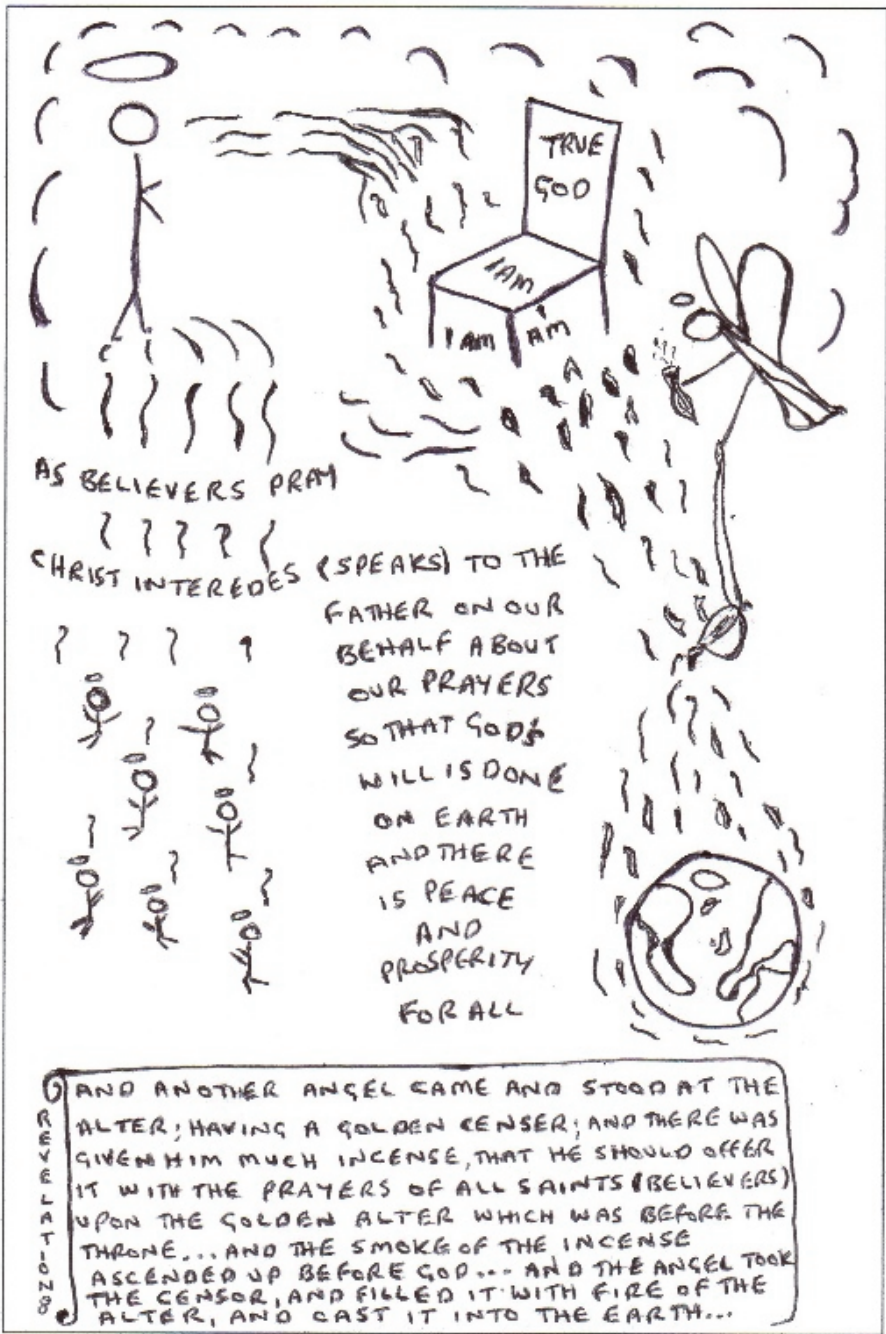 TRUE
GOD
I AM
I AM
I AM
AS BELIEVERS PRAY
CHRIST INTEREDES (SPEAKS) TO THE
FATHER ON OUR
BEHALF ABOUT
OUR PRAYERS
SO THAT GODS
WILL IS DONE
ON EARTH
AND THERE
IS PEACE
AND
PROSPERITY
FOR ALL
REVELATION 8
AND ANOTHER ANGEL CAME AND STOOD AT THE
ALTER; HAVING A GOLDEN CENSER; AND THERE WAS
GIVEN HIM MUCH INCENSE, THAT HE SHOULD OFFER
IT WITH THE PRAYERS OF ALL SAINTS (BELIEVERS)
UPON THE GOLDEN ALTER WHICH WAS BEFORE THE
THRONE... AND THE SMOKE OF THE INCENSE
ASCENDED UP BEFORE GOD... AND THE ANGEL TOOK
THE CENSOR, AND FILLED IT WITH FIRE OF THE
ALTER, AND CAST IT INTO THE EARTH...